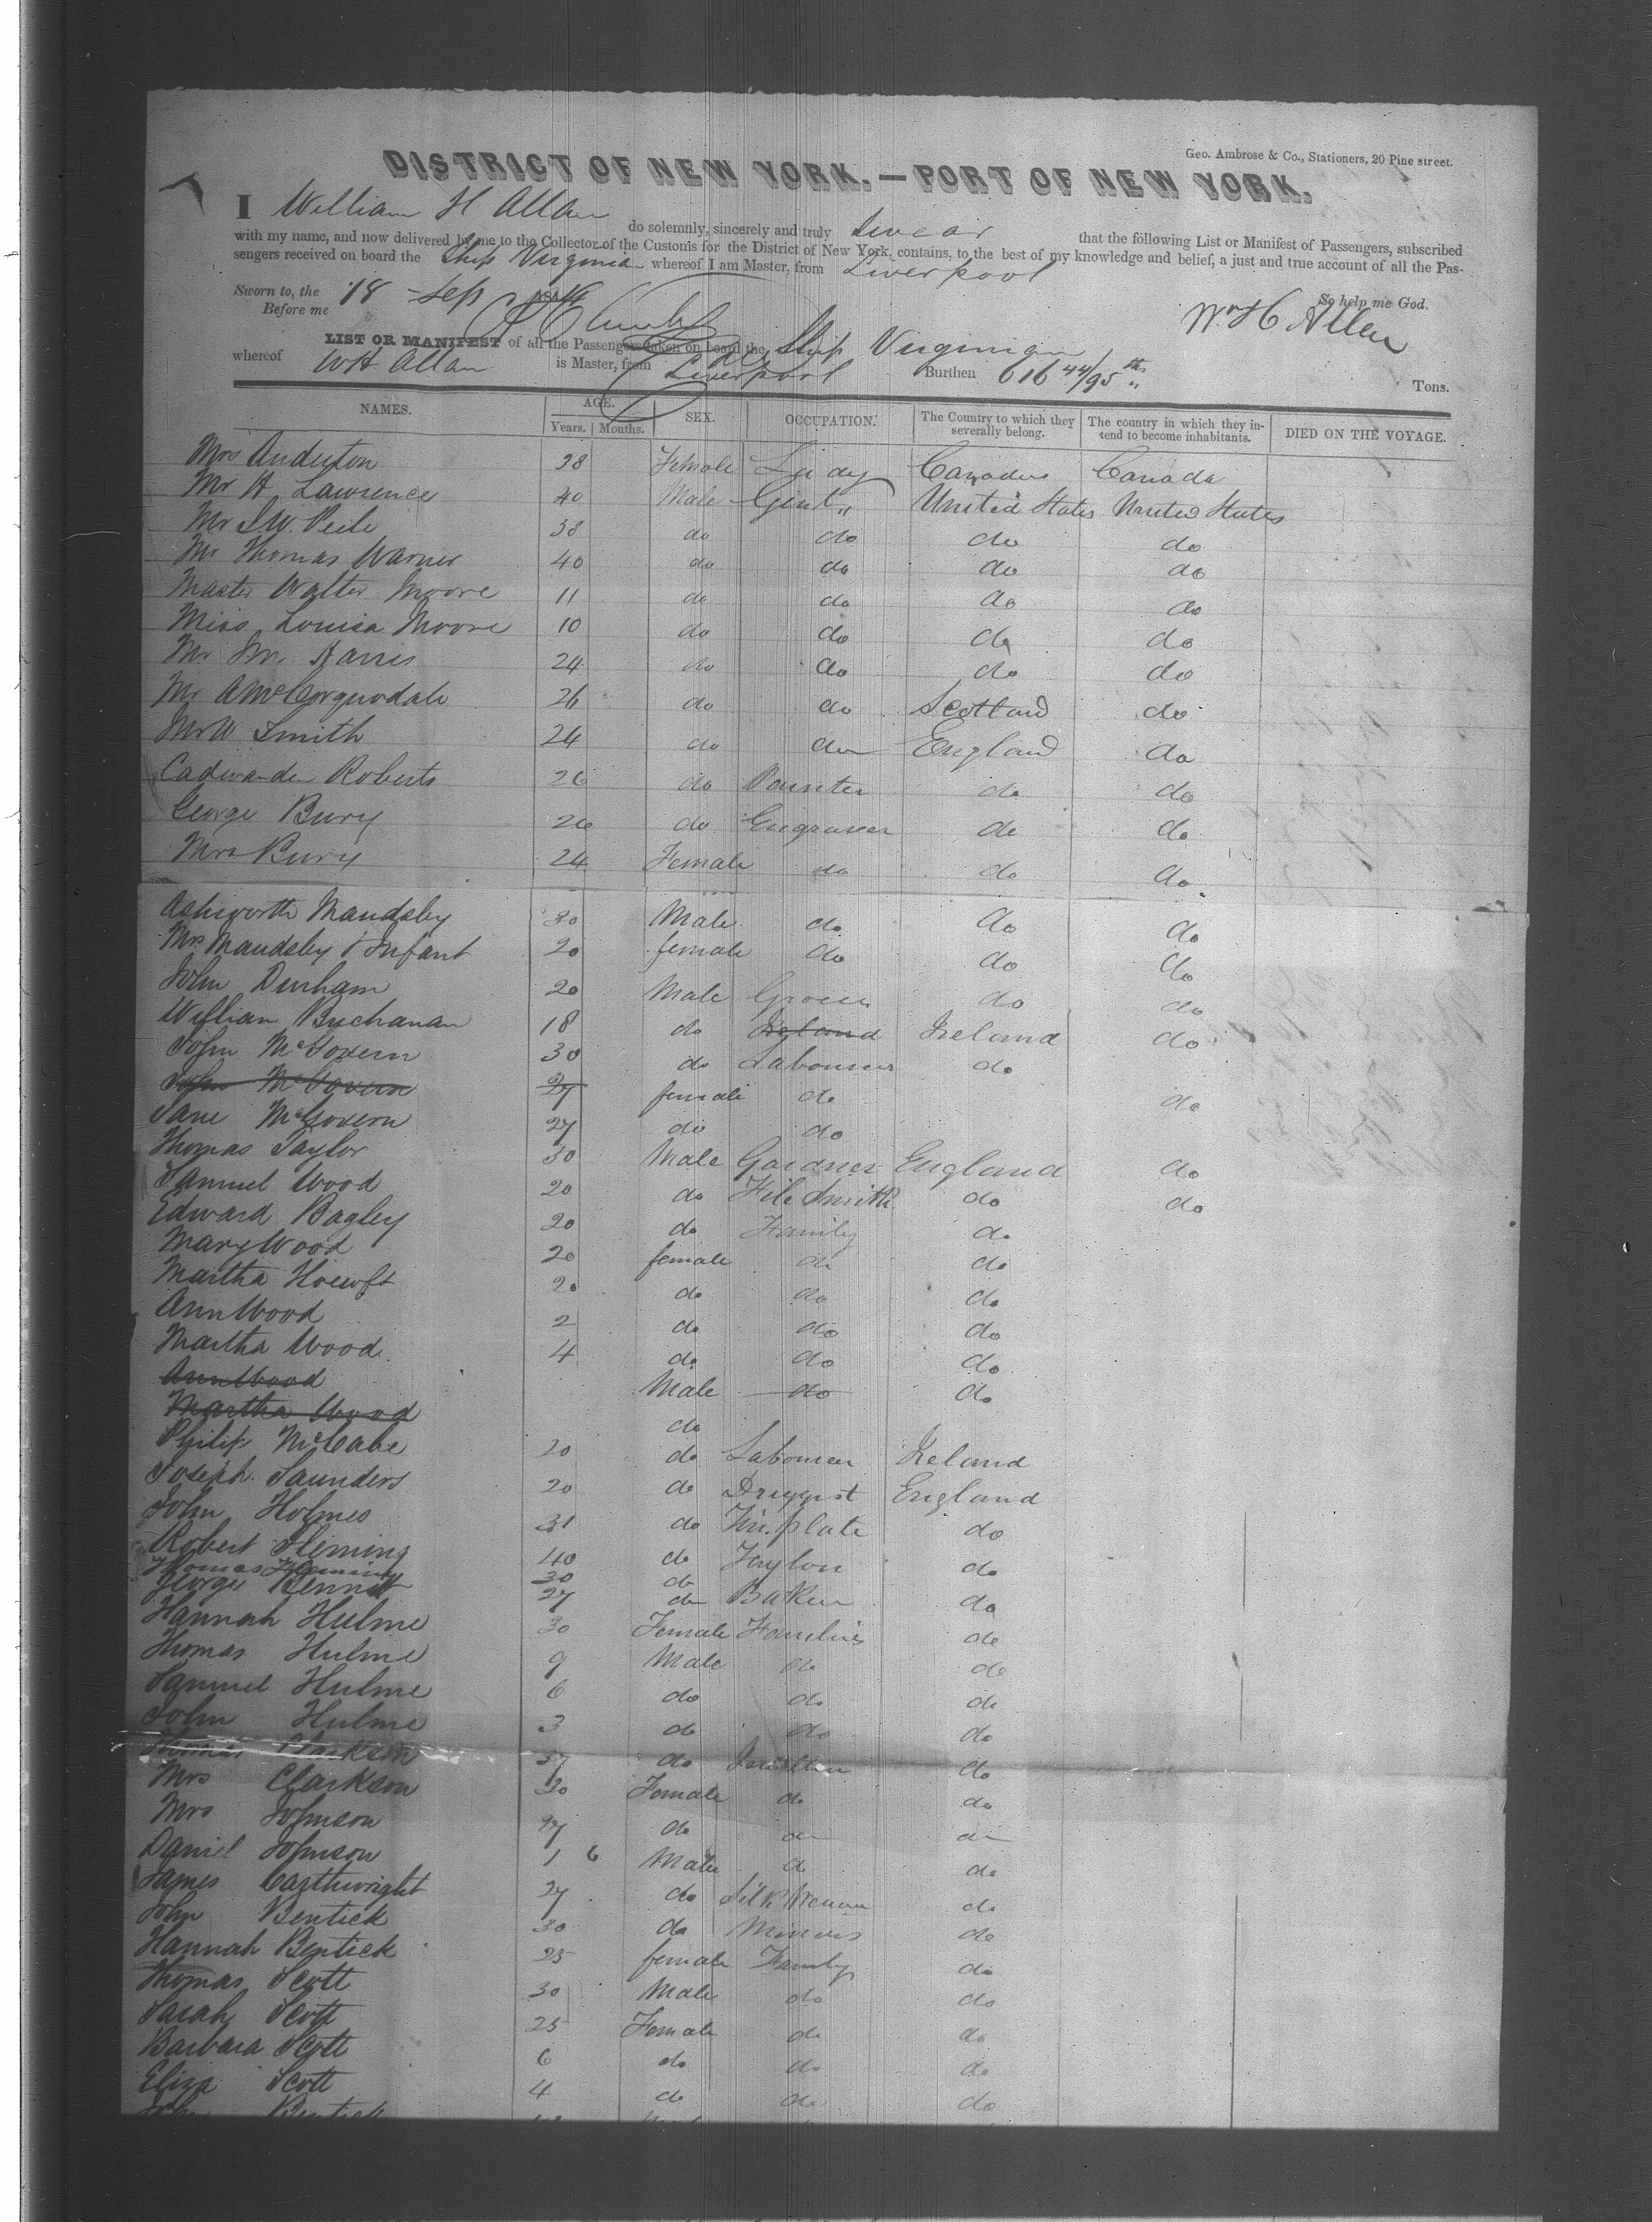 Geo. Ambrose & Co., Stationers, 20 Pine street.
DISTRICT OF NEW YORK.—PORT OF NEW YORK.
I William H Allan do solemnly, sincerely and truly swear that the following List or Manifest of Passengers, subscribed
with my name, and now delivered by me to the Collector of the Customs for the District of New York, contains, to the best of my knowledge and belief, a just and true account of all the Pas-
sengers received on board the Ship Virginian whereof I am Master, from Liverpool
Sworn to, the 18 - Sep
So help me God.
Before me
Wm H Allen
LIST OR MANIFEST of all the Passengers taken on board the Ship Virginian
whereof WH Allan is Master, from Liverpool Burthen 616 44/95 ths Tons.
NAMES. AGE. Years. Months. SEX. OCCUPATION. The Country to which they severally belong. The country in which they intend to become inhabitants. DIED ON THE VOYAGE.
Mrs Anderton 38 Female Lady Canada Canada
Mr H Lawrence 40 Male Gent" United States United States
Mr J W. Peile 38 do do do do
Mr Thomas Warner 40 do do do do
Master Walter Moore 11 do do do do
Miss Louisa Moore 10 do do do do
Mr Harris 24 do do do do
Mr A McCorquodale 26 do do Scotland do
Mr W Smith 24 do do England do
Roberts 26 do Painter do do
George Bury 26 do Engraver do do
Mrs Bury 24 Female do do do
Ashworth Maudsley 30 Male do do do
Mrs Maudsley & Infant 20 female do do do
John Durham 20 Male Grocer do do
William Buchanan 18 do Ireland Ireland do
John McGovern 30 do Labourer do
John McGovern 27 female do do
Jane McGovern 27 do do
Thomas Taylor 30 Male Gardner England do
Samuel Wood 20 do File Smith do do
Edward Bagley 20 do Family do
Mary Wood 20 female do do
Martha 20 do do do
Ann Wood 2 do do do
Martha Wood 4 do do do
Ann Wood Male do do
Martha Wood do
Philip McCabe 20 do Labourer Ireland
Joseph Saunders 20 do Druggist England
John Holmes 31 do Tin plate do
Robert Fleming 40 do Taylor do
Thomas Fleming 30 do
George Bennett 27 do Baker do
Hannah Hulme 30 Female Families do
Thomas Hulme 9 Male do do
Samuel Hulme 6 do do do
John Hulme 3 do do do
Thomas Clarkson 37 do do
Mrs Clarkson 30 Female do do
Mrs Johnson 27 do do do
Daniel Johnson 1 6 Male do do
James Carthwright 27 do Silk Weaver do
John Bentick 30 do Miners do
Hannah Bentick 25 female Family do
Thomas Scott 30 Male do do
Sarah Scott 25 Female do do
Barbara Scott 6 do do do
Eliza Scott 4 do do do
John Bentick